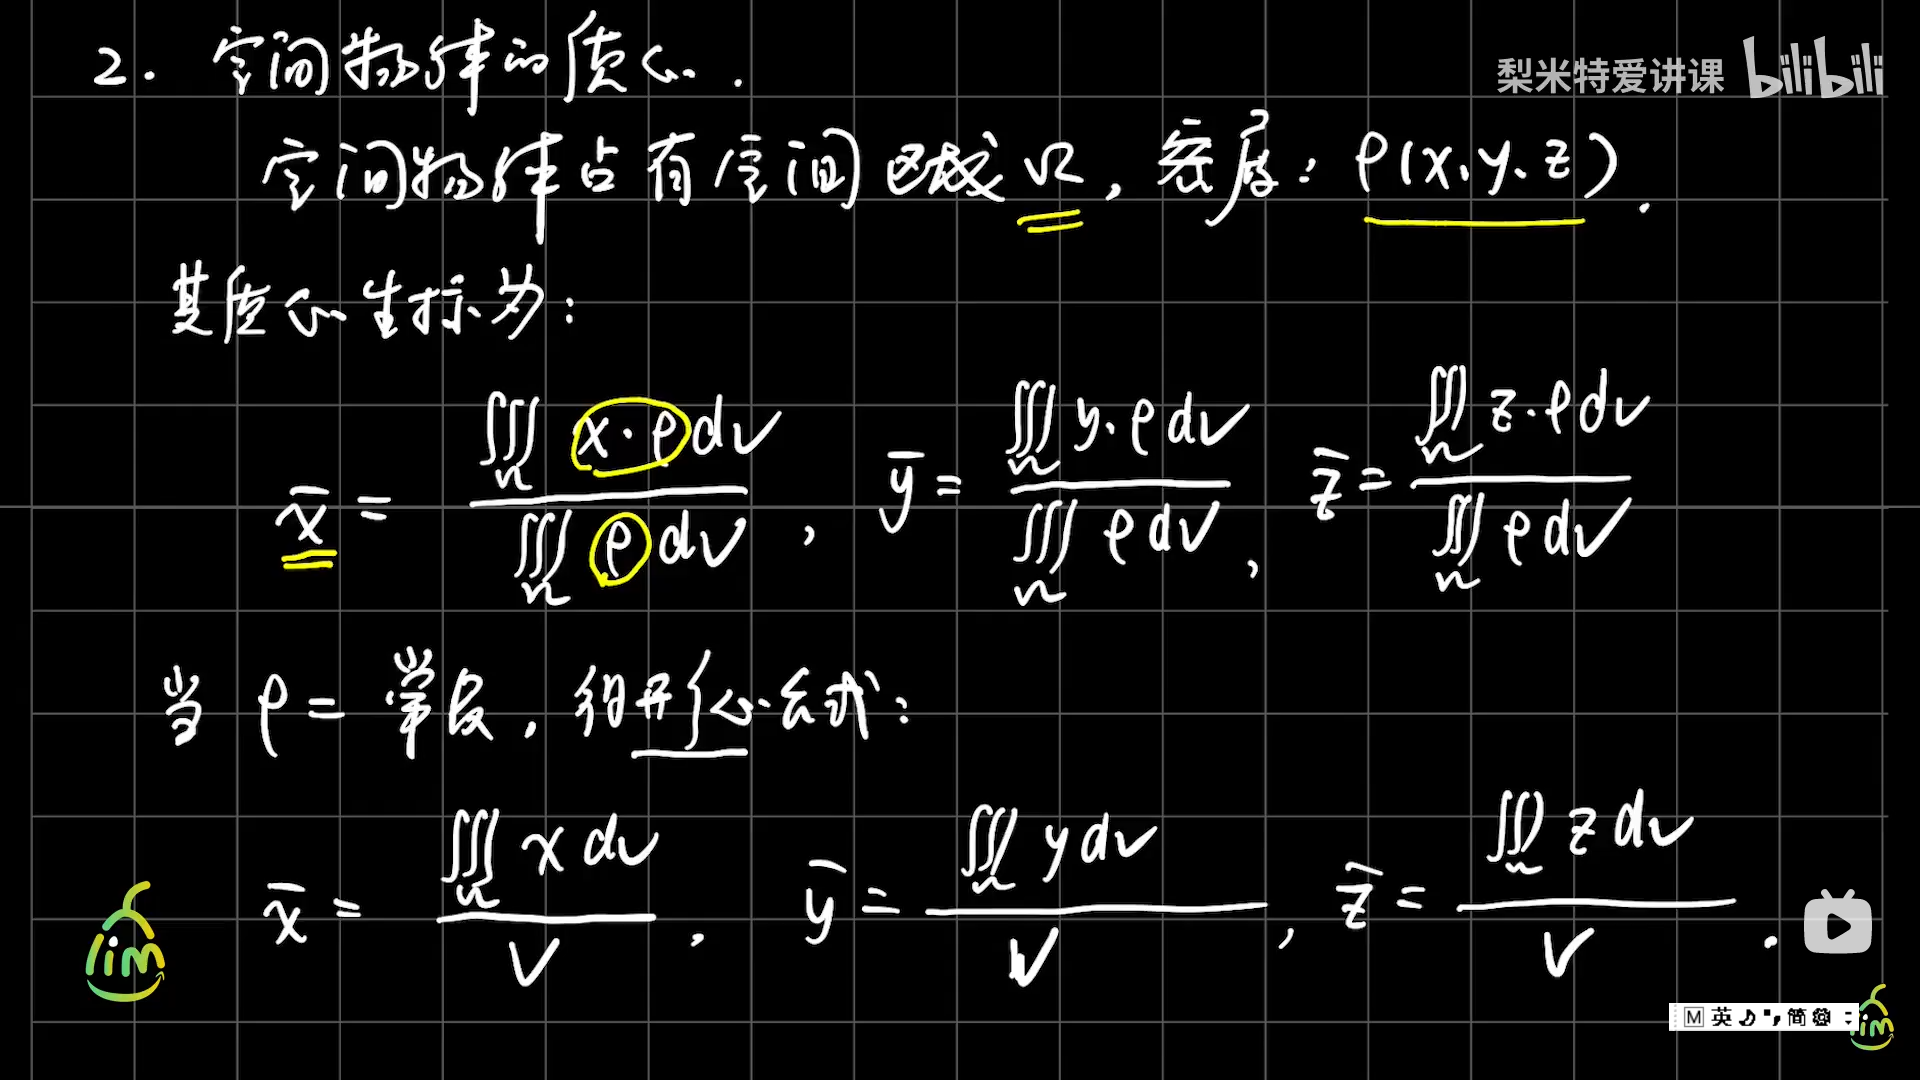 2. 空间物体的质心.
梨米特爱讲课 bilibili
空间物体占有空间区域Ω, 密度: ρ(x、y、z).
其质心坐标为:
x̄ = ∭_Ω x·ρdv / ∭_Ω ρdv , ȳ = ∭_Ω y·ρdv / ∭_Ω ρdv , z̄ = ∭_Ω z·ρdv / ∭_Ω ρdv
当 ρ = 常数, 得形心公式:
x̄ = ∭_Ω xdv / V , ȳ = ∭_Ω ydv / V , z̄ = ∭_Ω zdv / V .
lim
M 英 简
lim